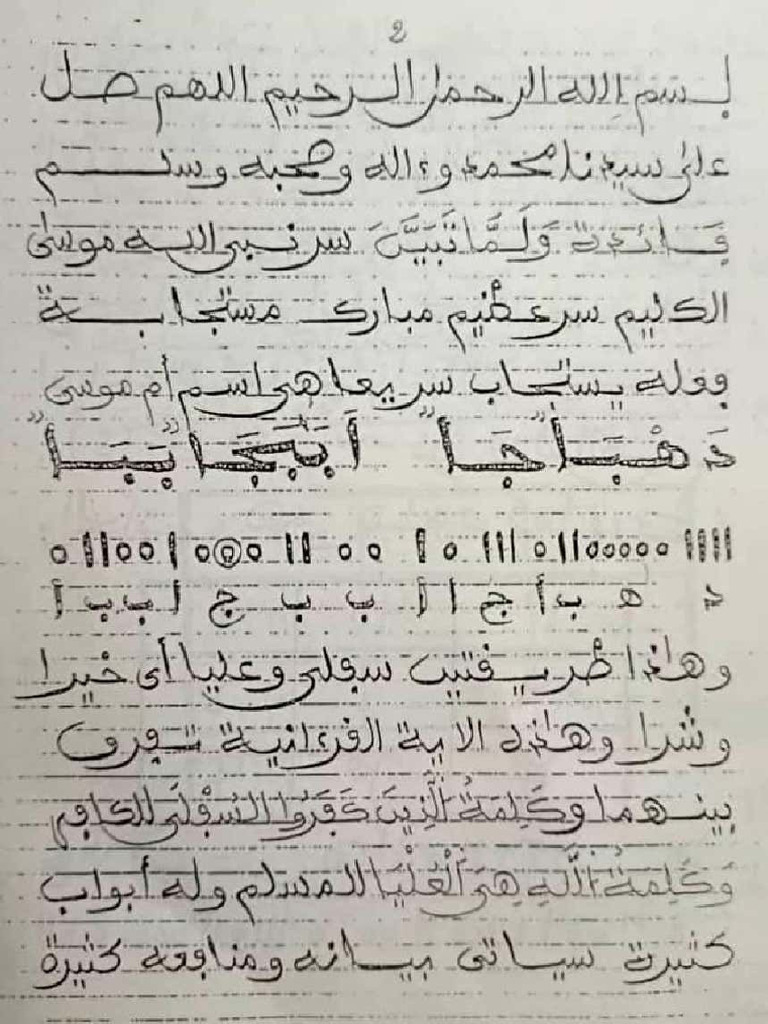 2
بسم الله الرحمن الرحيم اللهم صل
على سيدنا محمد وءاله وصحبه وسلم
فائدة وَلَمَّا تَبَيَّنَ سر نبي الله موسى
الكليم سر عظيم مبارك مستجابة
فعله يستجاب سريعا هي اسم أم موسى
دَ هْبَا جَا أَبَبَجَا بَبَا
اااا ٥٥٥٥٥ اا ٥ ااا ٥ ا ٥ ٥ اا ٥ ٥ ٥ ا ٥٥ اا ٥
د ه ب أ ج ا أ ب ب ج ا ب ب أ
وهاذا طريقتين سفلى وعليا أى خيرا
وشرا وهاذه الاية القرءانية تفرق
بينهما وَكَلِمَةُ الَّذِينَ كَفَرُوا السُّفْلَى للكافر
وَكَلِمَةُ اللَّهِ هِيَ الْعُلْيَا للمسلم وله أبواب
كثيرة سياتى بيانه ومنافعه كثيرة